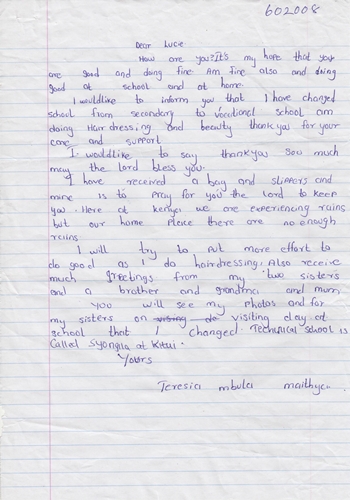 602008
Dear Lucie
How are you? It's my hope that you
are good and doing fine. Am fine also and doing
good at school and at home.
I would like to inform you that I have changed
school from secondary to vocational school am
doing Hair dressing and beauty thank you for your
care and support
I would like to say thank you soo much
may the lord bless you.
I have received a bag and slippers and
mine is to pray for you the lord to keep
you. Here at kenya we are experiencing rains
but our home place there are no enough
rains.
I will try to put more effort to
do good as I do hairdressing. Also receive
much greetings from my two sisters
and a brother and grandma and mum
You will see my photos and for
my sisters on visiting day at
school that I changed. Technical school is
called Syongila at Kitui.
Yours
Teresia mbula